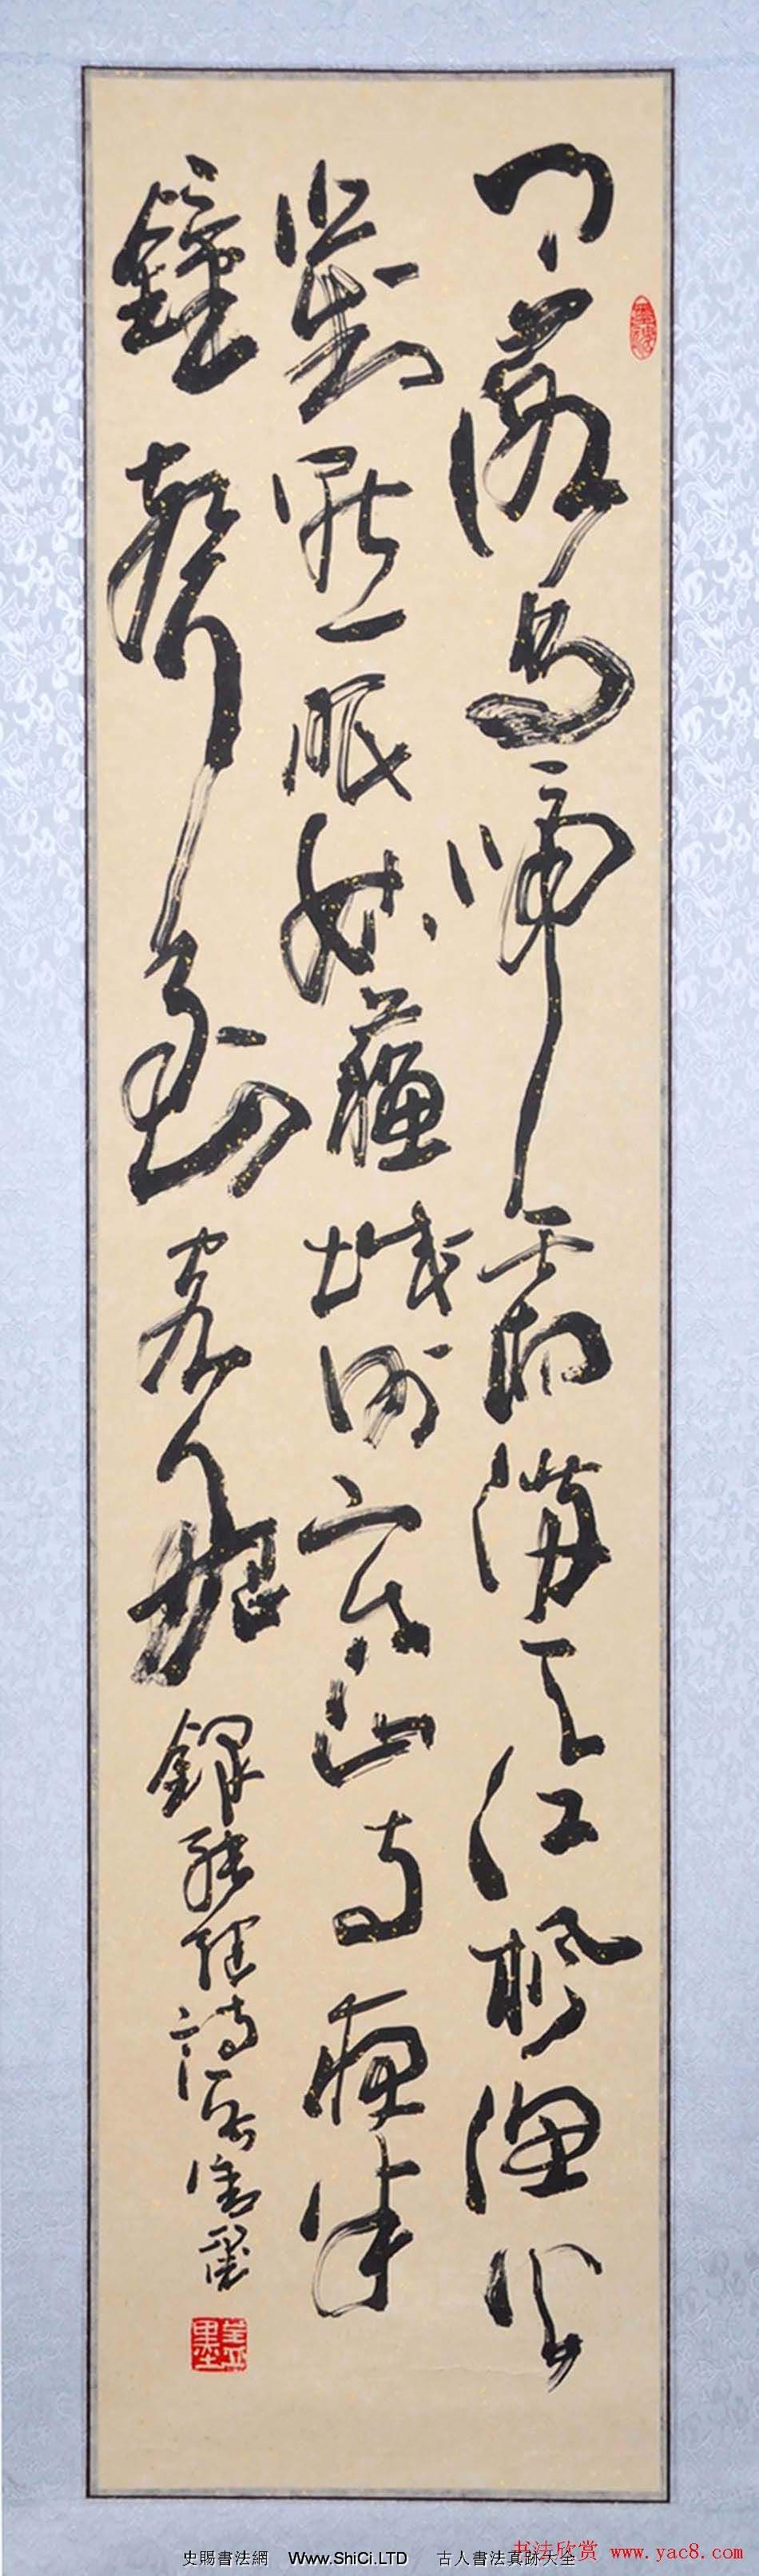 月落烏啼霜滿天江楓漁火
對愁眠姑蘇城外寒山寺夜半
鐘聲到客船 錄張繼詩
书法欣赏 www.yac8.com
史賜書法網 Www.ShiCi.LTD 古人書法真跡大全